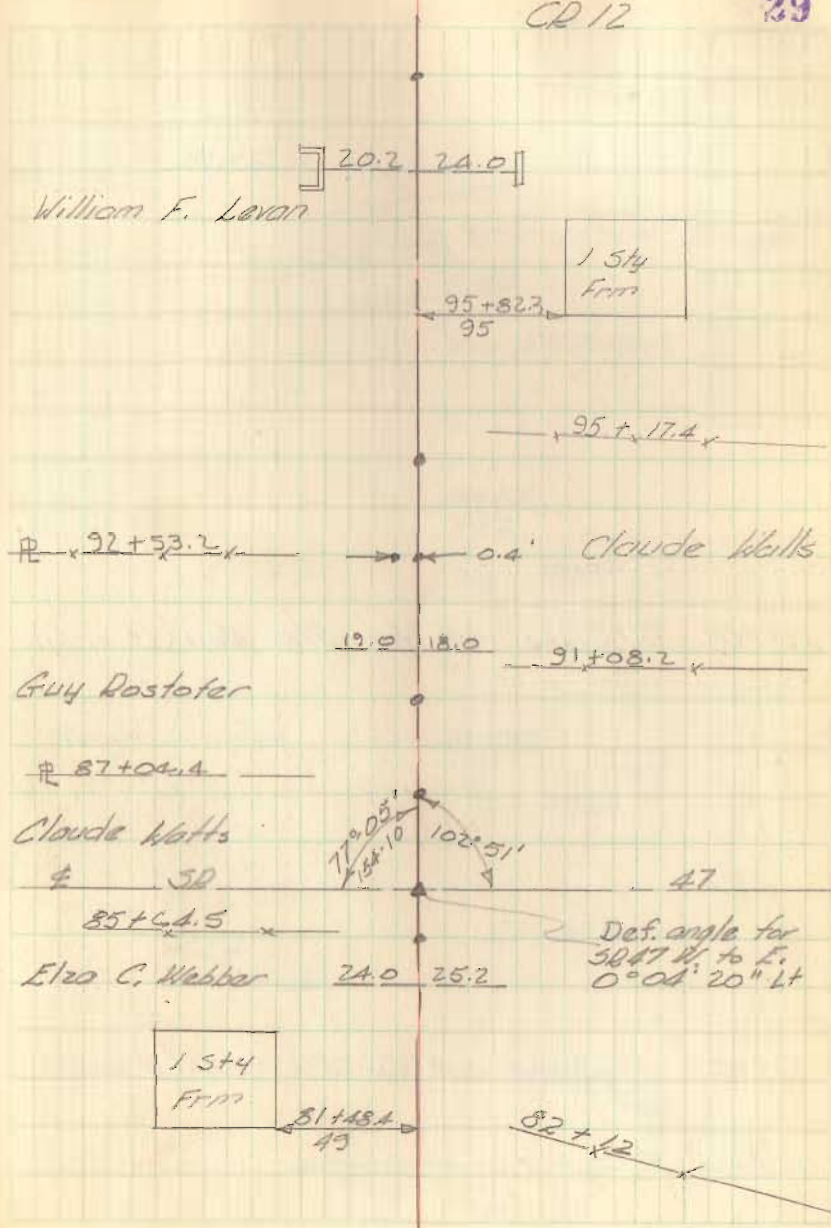 CR 12
29
20.2 24.0
William F. Levan
1 Sty
Frm
95+82.3
95
95+17.4
PL 92+53.2
0.4'
Claude Walls
19.0 18.0
91+08.2
Guy Rostofer
PL 87+04.4
Claude Watts
77°05'
154-10
102°51'
℄ SR 47
85+64.5
Def. angle for
SR47 W. to E.
0°04'20" Lt
Elza C. Webber
24.0 25.2
1 Sty
Frm
81+48.4
49
82+12